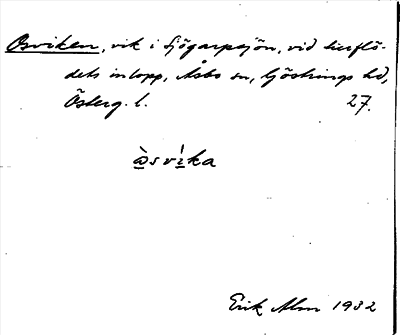 Osviken, vik i Sjögarpsjön, vid
dets inlopp, Åsbo sn, Göstrings hd,
Österg. l. 27.
àsvìka
Erik Alm 1932